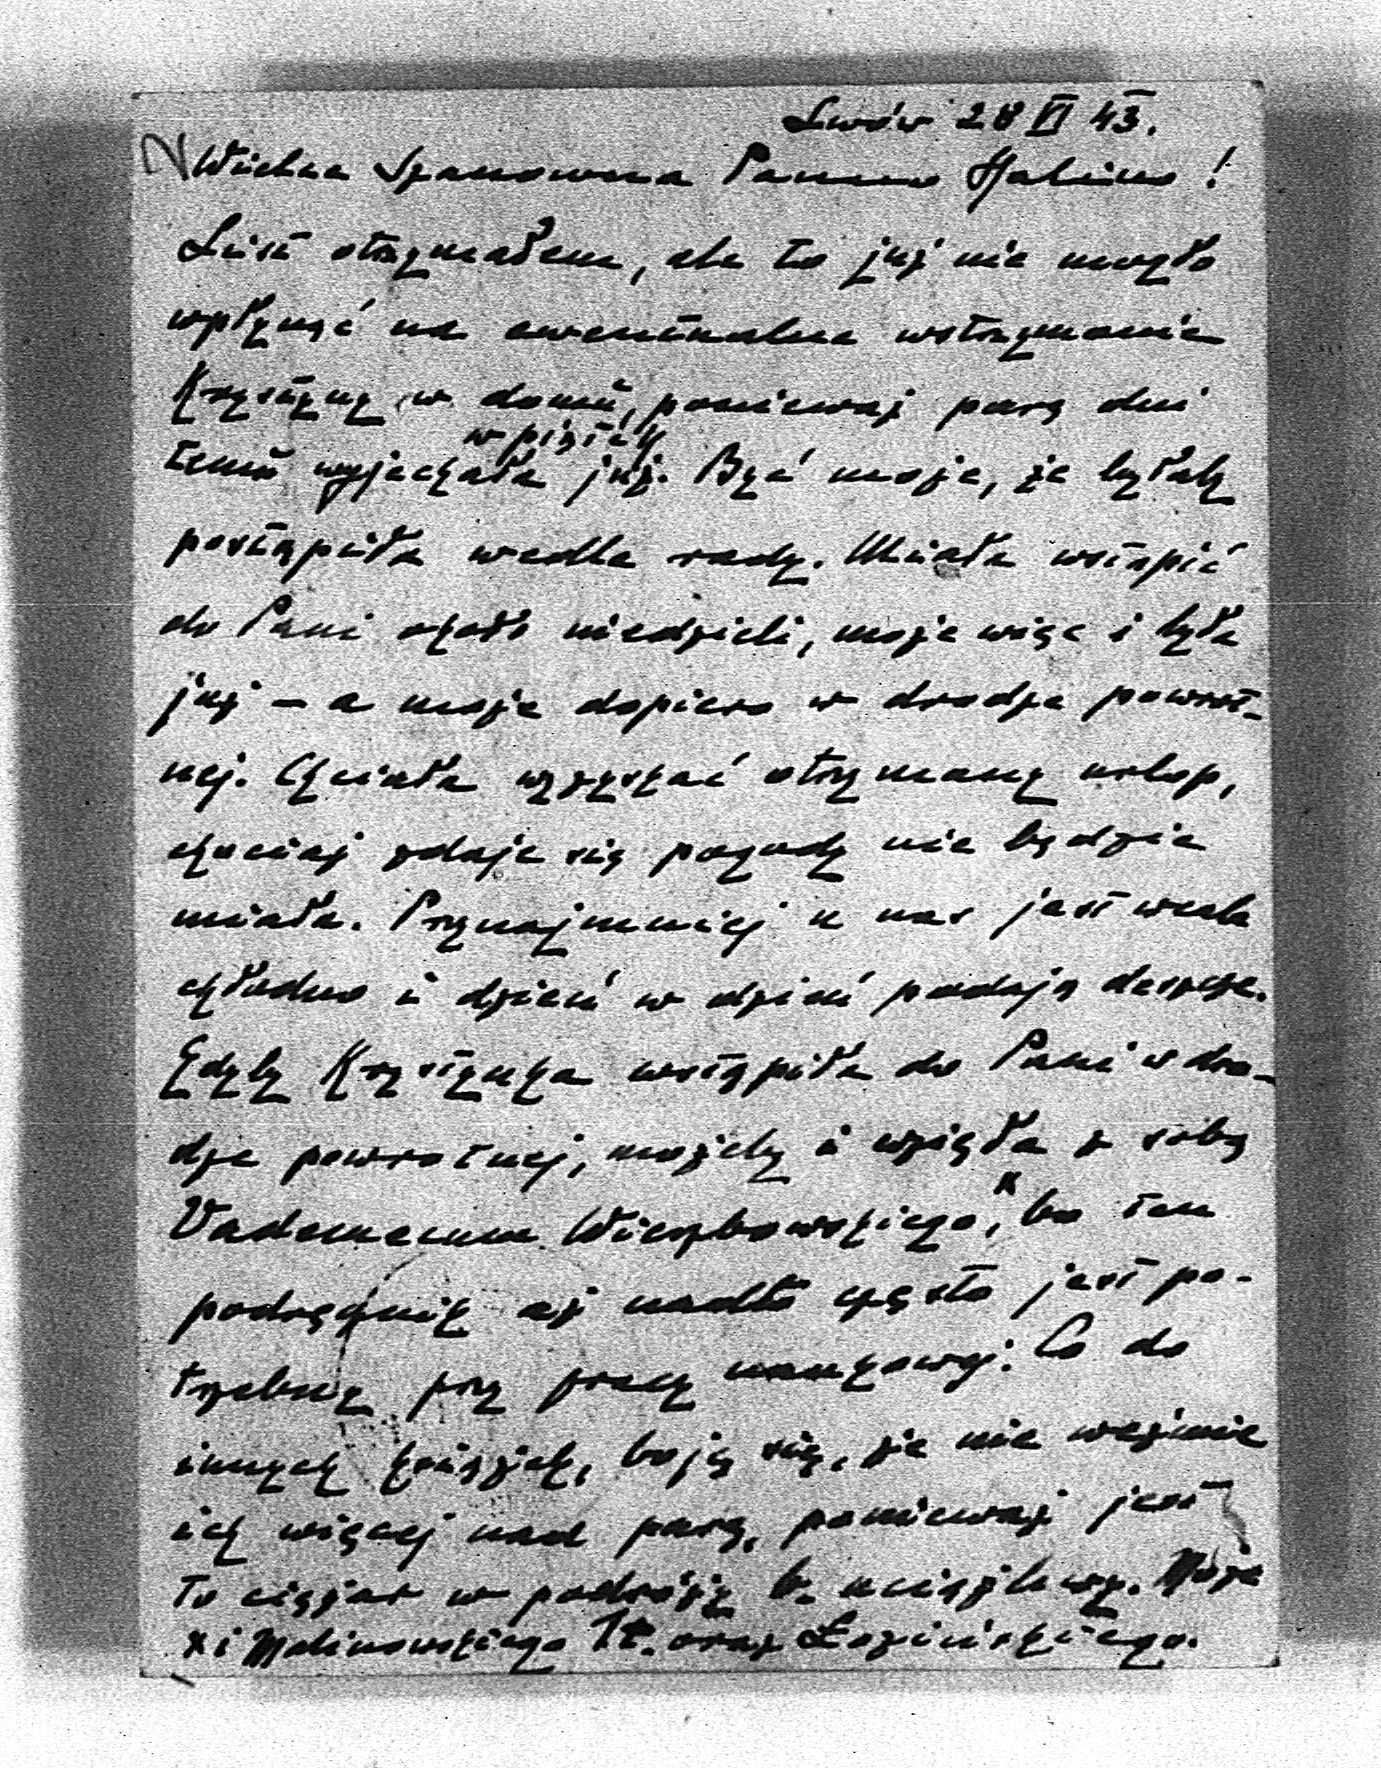 Lwów 28 VI 43.
Wielce Szanowna Panno Halino!
List otrzymałem, ale to już nie mogło
wpłynąć na ewentualne wstrzymanie
Krystyny w domu, ponieważ parę dni
w piątek
temu wyjechała już. Być może, że byłaby
postąpiła wedle rady. Miała wstąpić
do Pani około niedzieli, może więc i była
już – a może dopiero w drodze powrot-
nej. Chciała wyzyskać otrzymany urlop,
chociaż zdaje się pogody nie będzie
miała. Przynajmniej u nas jest wcale
chłodno i dzień w dzień padają deszcze.
Gdyby Krystynka wstąpiła do Pani w dro-
dze powrotnej, możeby i wzięła z sobą
Vademecum Wierzbowskiego,ˣ bo ten
podręcznik aż nadto często jest po-
trzebny przy pracy naukowej. Co do
innych książek, boję się, że nie weźmie
ich więcej nad parę, ponieważ jest
to ciężar w podróży b. uciążliwy. Może
x i Malinowskiego St. oraz Łozińskiego.